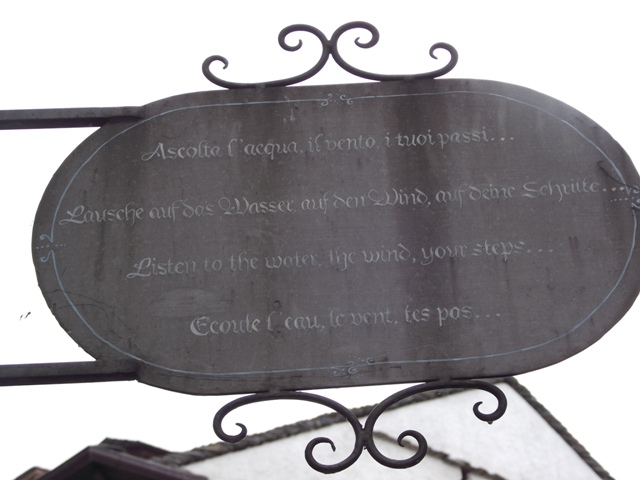 Ascolta l'acqua, il vento, i tuoi passi...
Lausche auf das Wasser, auf den Wind, auf deine Schritte...
Listen to the water, the wind, your steps...
Ecoute l'eau, le vent, tes pas...